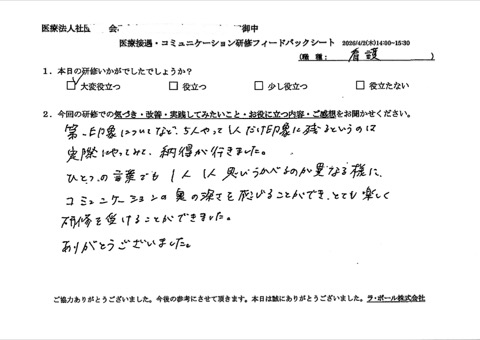 医療法人社 会 御中
医療接遇・コミュニケーション研修フィードバックシート 2026/4/2(木)14:00~15:30
(職種: 看護 )
1．本日の研修いかがでしたでしょうか？
☑大変役立つ □役立つ □少し役立つ □役立たない
2．今回の研修での気づき・改善・実践してみたいこと・お役に立つ内容・ご感想をお聞かせください。
第一印象についてなど、5人やって1人だけ印象に残るというのは
実際にやってみて、納得が行きました。
ひとつの言葉でも1人1人思いうかべるのが異なる様に、
コミュニケーションの奥の深さを感じることができ、とても楽しく
研修を受けることができました。
ありがとうございました。
ご協力ありがとうございました。今後の参考にさせて頂きます。本日は誠にありがとうございました。ラ・ポール株式会社